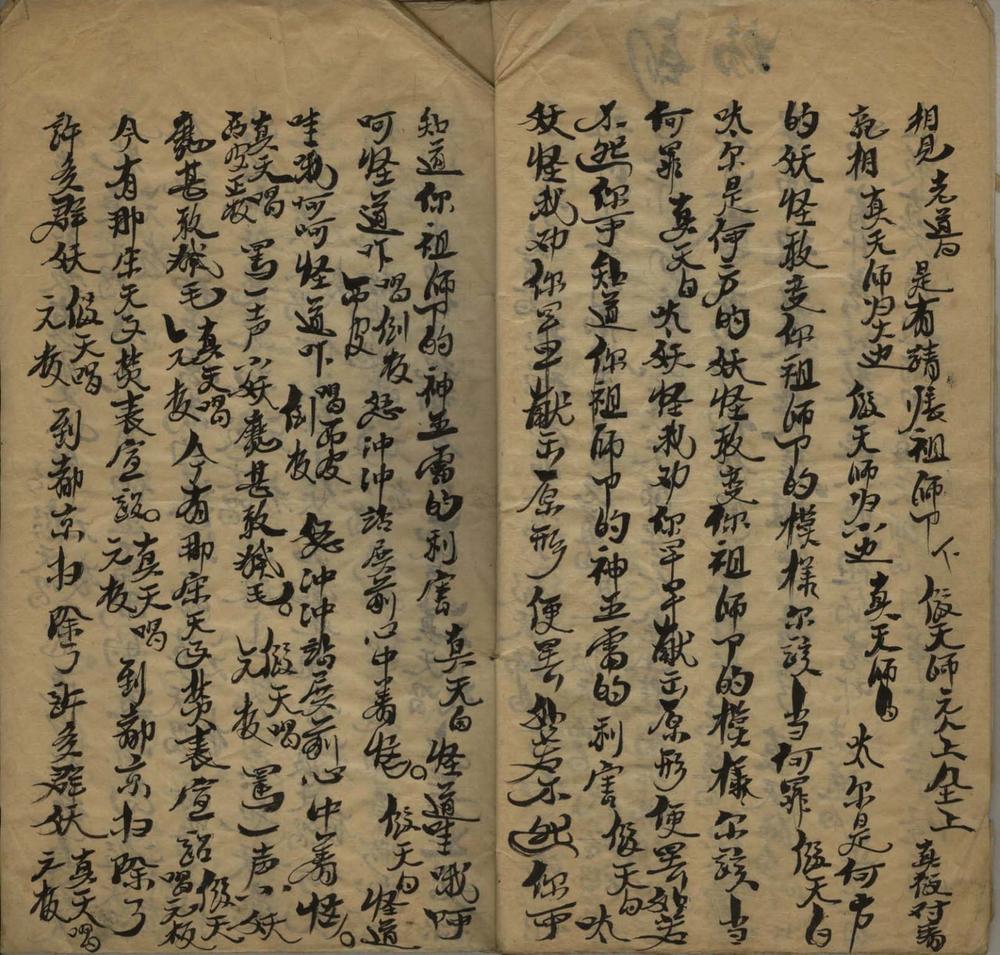 相見 老道白 是有請張祖師下 假天師元人上仝上 真假对看
亮相 真天师为大边 假天师为小边 真天师白 呔尔是何方
的妖怪敢变你祖师下的模樣尔該当何罪 假天白
呔尔是何方的妖怪敢变你祖师下的模樣尔該当
何罪 真天白 呔妖怪我劝你早早献出原形便罢如若
不然你可知道你祖师下的神五雷的利害 假天白 呔
妖怪我劝你早早献出原形 便罢如若不然你可
知道你祖师下的神五雷的利害 真天白 怪道哇哦呀
呵怪道吖 唱倒板 西皮 怒冲冲站展前心中着怪。 假天白 怪道
哇哦呵呵怪道吖 唱西皮 倒板 怒冲冲站展前心中着怪。
真天唱 西皮正板 罵一声小妖魔甚敢猴毛。 假天唱 元板 罵一声小妖
魔甚敢猴毛 真天唱 元板 今有那宋天子焚表宣詔 假天唱元板
今有那宋天子焚表宣詔。 真天唱 元板 到都京扫除了
許多群妖 假天唱 元板 到都京扫除了許多群妖 真天唱 元板